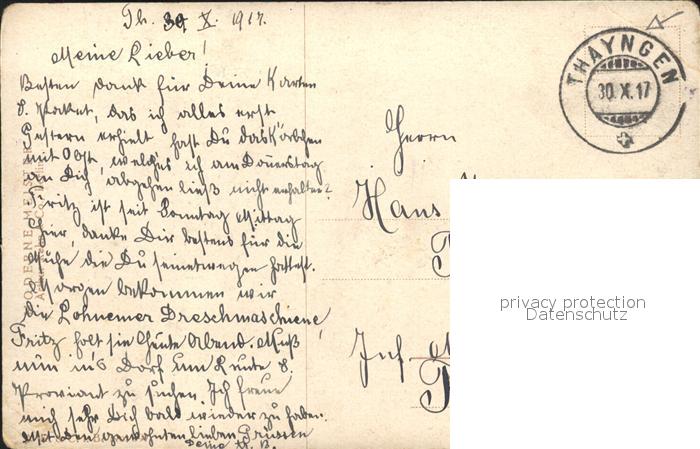 Th. 30. X. 1917.
Meine Lieber!
Besten Dank für Deine Karten
& Paket, das ich alles erst
gestern erhielt hast Du das Körbchen
mit Obst, welches ich am Donnerstag
an Dich abgehen ließ nicht erhalten?
Fritz ist seit Sonntag Mittag
hier, danke Dir bestens für die
Mühe die Du seinetwegen hattest.
Morgen bekommen wir
die Lohnemer Dreschmaschiene,
Fritz holt sie heute Abend. Muß
nun in's Dorf um Leute &
Proviant zu suchen. Ich freue
mich sehr Dich bald wieder zu haben.
Mit den gewohnten lieben Grüssen
Deine
THAYNGEN
30.X.17
Herrn
Hans
Inf
privacy protection
Datenschutz